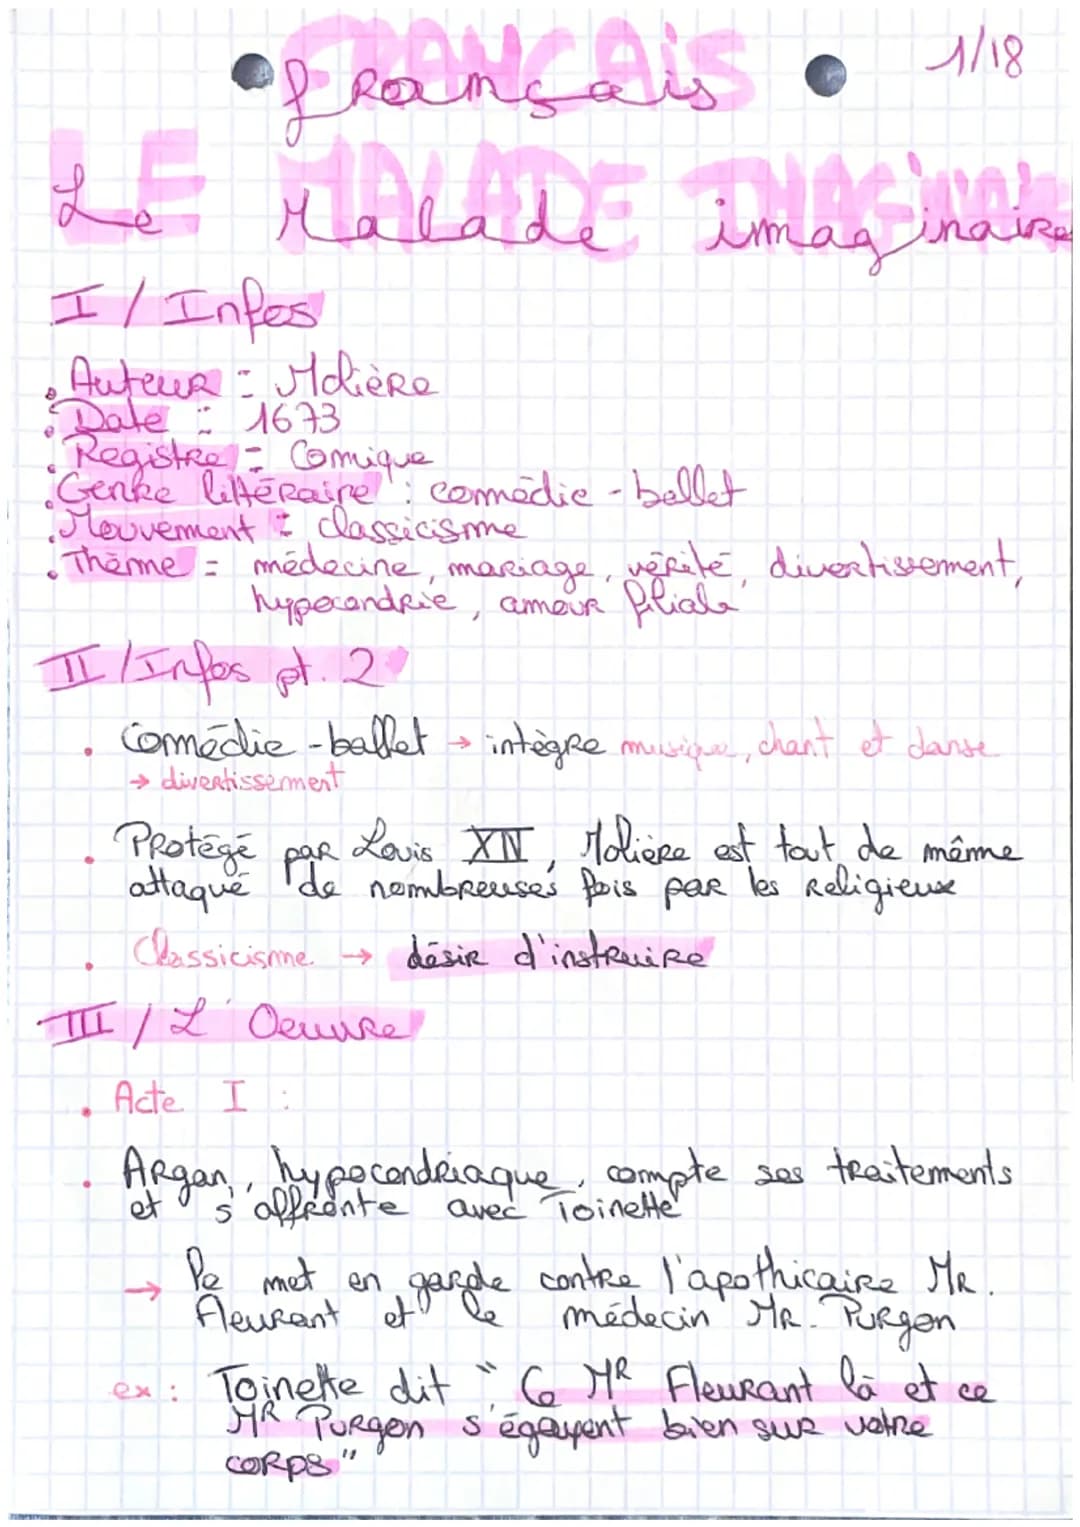 1/18
FRANÇAIS
français
LE MALADE IMAGINAIRE
Le Malade imaginaire
I / Infos
• Auteur : Molière
• Date : 1673
• Registre : Comique
• Genre littéraire : comédie-ballet
• Mouvement : classicisme
• Thème : médecine, mariage, vérité, divertissement,
hypocondrie, amour filiale
II / Infos pt. 2
• Comédie-ballet → intègre musique, chant et danse
→ divertissement
• Protégé par Louis XIV, Molière est tout de même
attaqué de nombreuses fois par les religieux
• Classicisme → désir d'instruire
III / L'Oeuvre
• Acte I :
• Argan, hypocondriaque, compte ses traitements
et s'affronte avec Toinette
→ le met en garde contre l'apothicaire Mr.
Fleurant et le médecin Mr. Purgon
ex : Toinette dit " Ce Mr Fleurant là et ce
Mr Purgon s'égayent bien sur votre
corps "